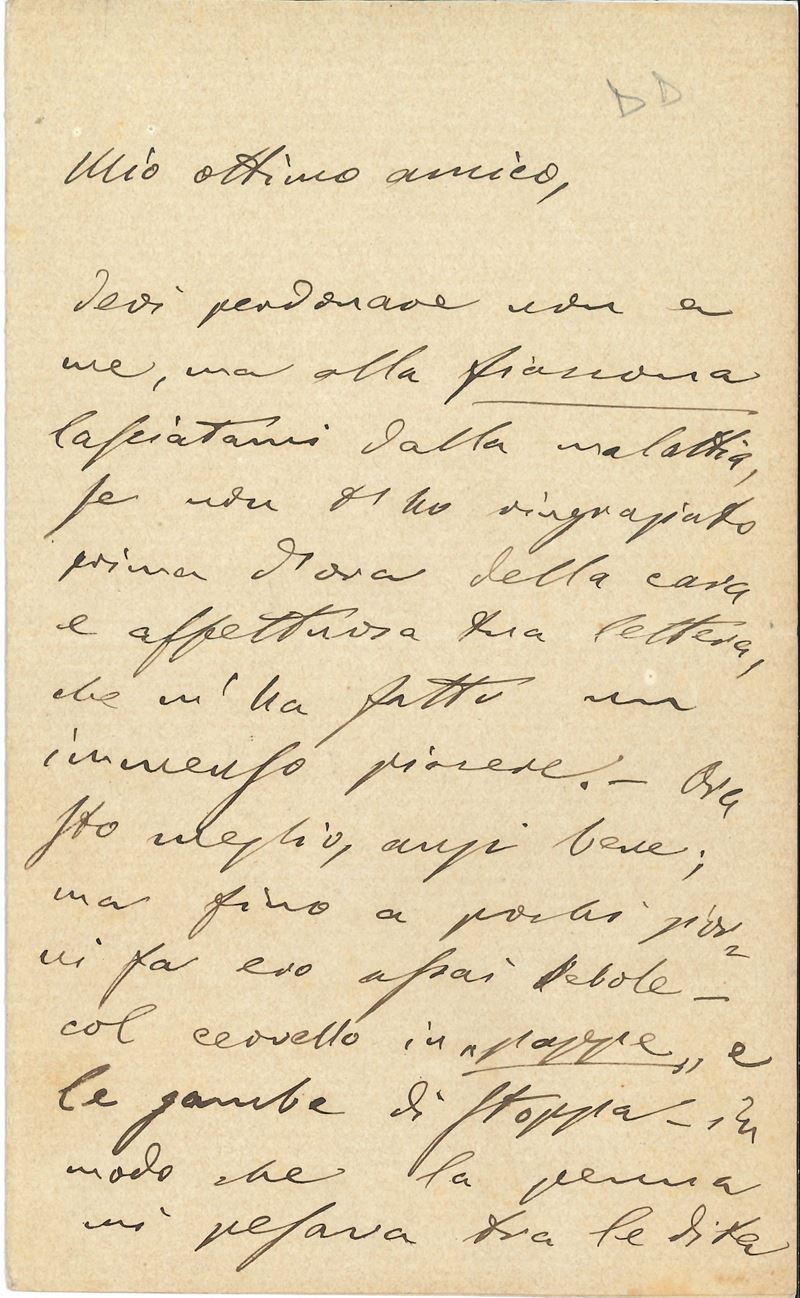 DD
Mio ottimo amico,
devi perdonare non a
me, ma alla fiaccona
lasciatami dalla malattia,
se non t'ho ringraziato
prima d'ora della cara
e affettuosa tua lettera,
che m'ha fatto un
immenso piacere. – Ora
sto meglio, anzi bene;
ma fino a pochi gior=
ni fa ero assai debole –
col cervello in „pappe„ e
le gambe di stoppa – in
modo che la penna
mi pesava tra le dita